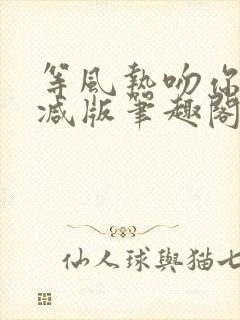 等風熱吻你
減版筆趣閣
仙人球與猫七